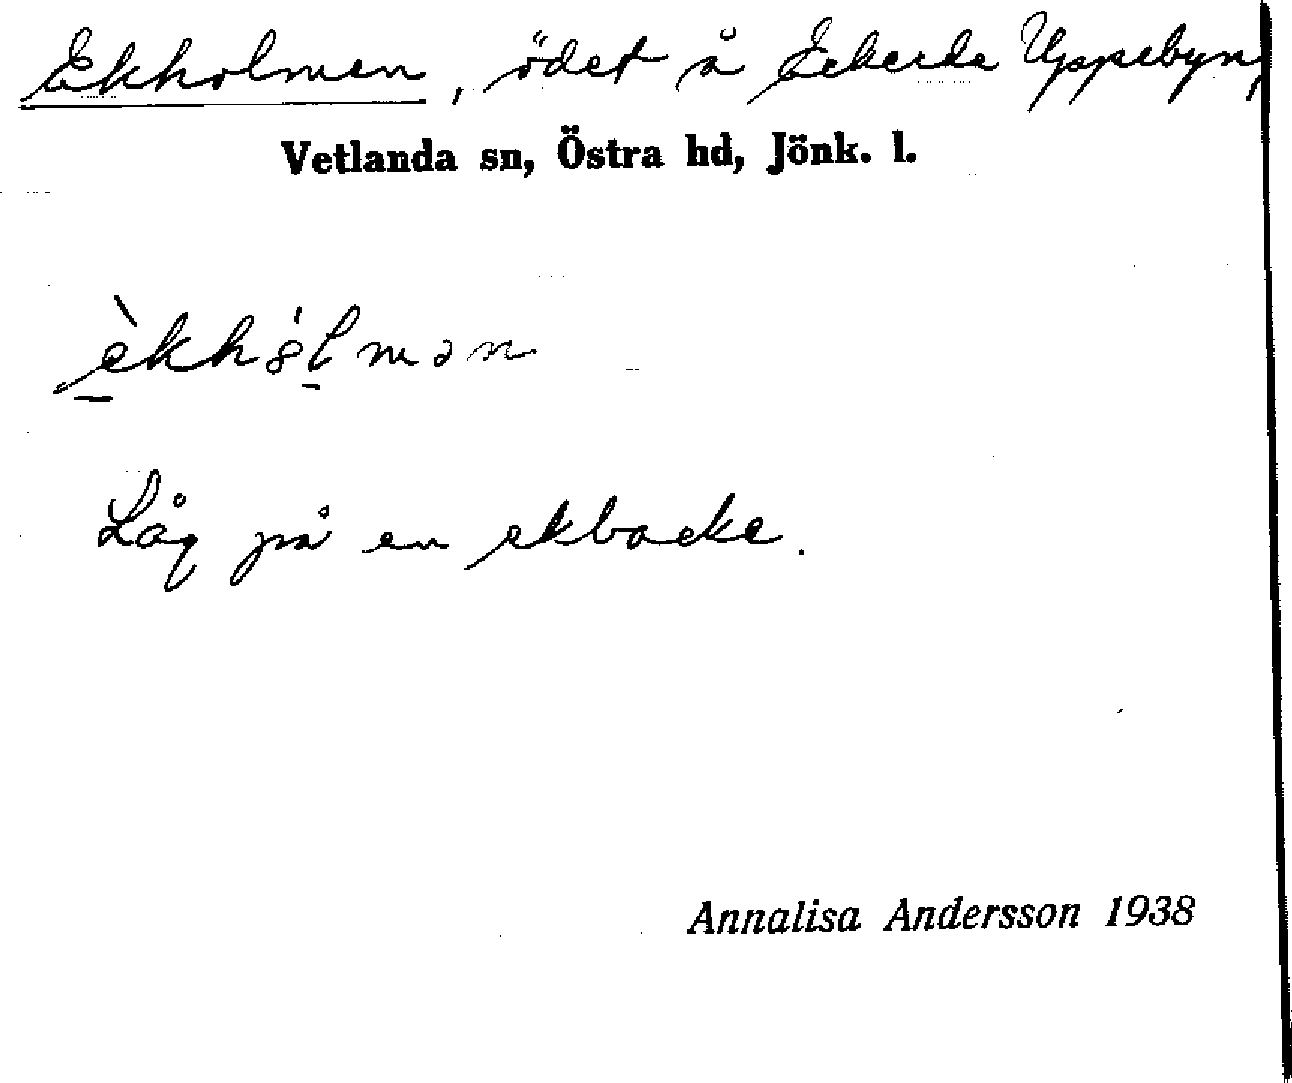 Ekholmen, ödet å Ekerda Uppebyn,
Vetlanda sn, Östra hd, Jönk. l.
èkhólmən
Låg på en ekbacke.
Annalisa Andersson 1938